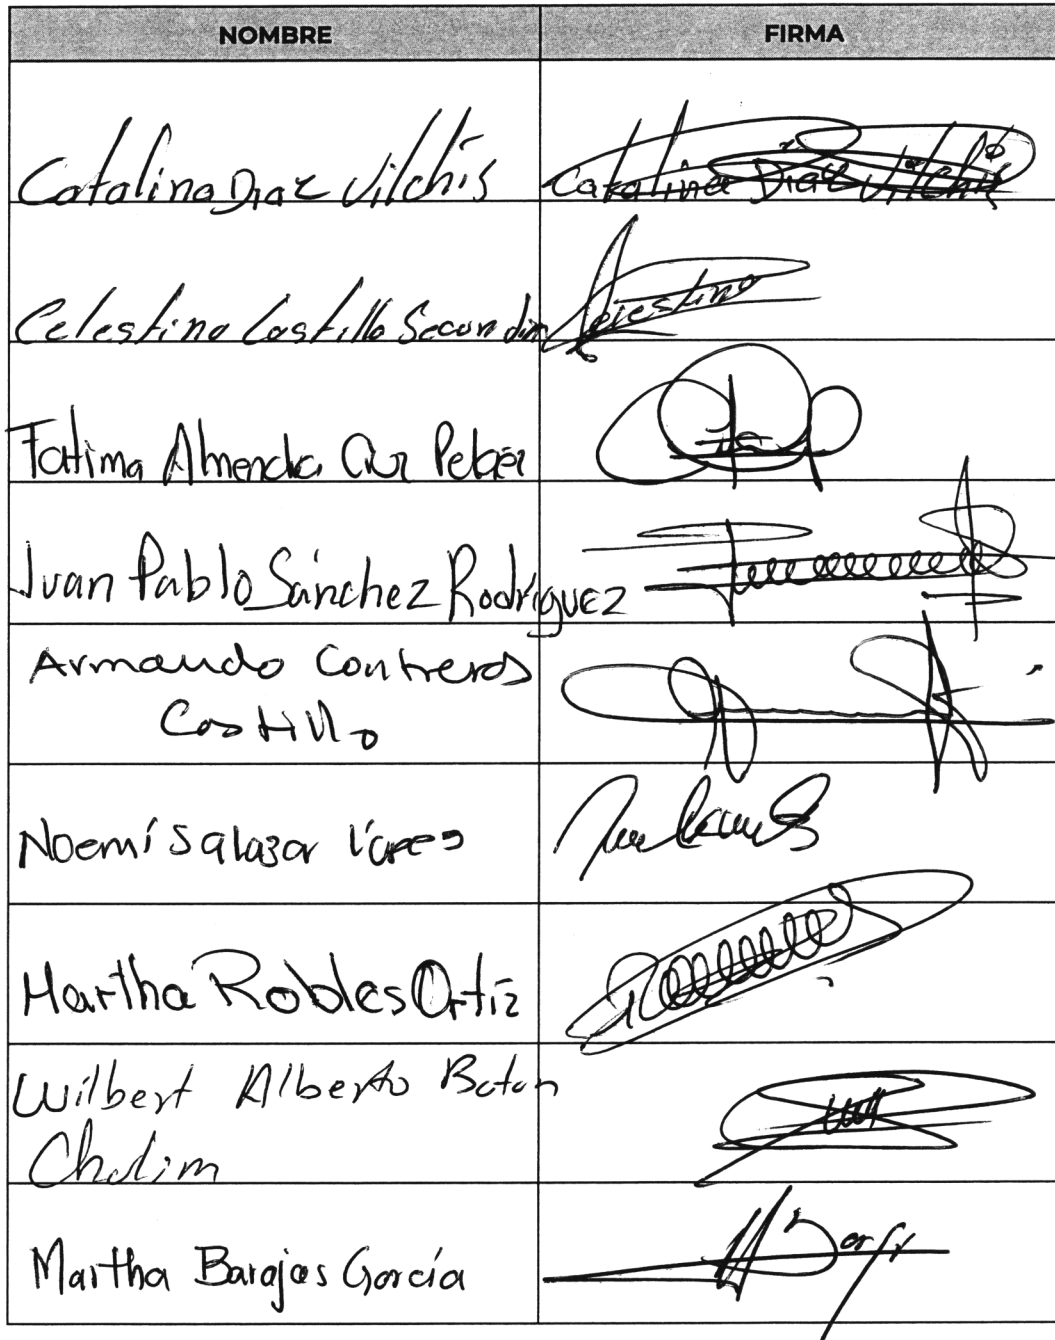 NOMBRE FIRMA
Catalina Díaz Vilchis Catalina Díaz Vilchis
Celestina Castillo Secundino
Fatima Almendra Cruz Pelaéz
Juan Pablo Sánchez Rodríguez
Armando Contreras
Castillo
Noemí Salazar
Martha Robles Ortíz
Wilbert Alberto Batun
Chulim
Martha Barajas García